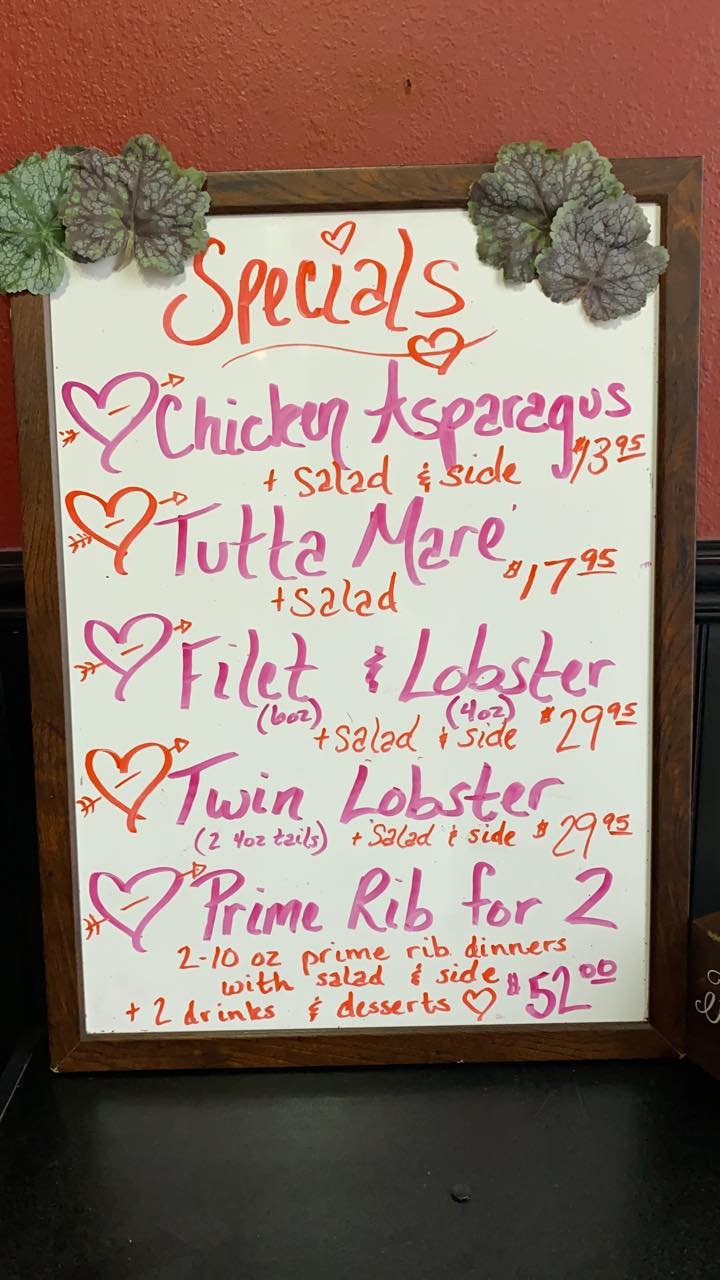 Specials
Chicken Asparagus
+ Salad & side $13.95
Tutta Mare'
+Salad $17.95
Filet & Lobster
(6oz) (4oz)
+Salad & side $29.95
Twin Lobster
(2 4oz tails) +Salad & side $29.95
Prime Rib for 2
2-10 oz prime rib dinners
with salad & side
+ 2 drinks & desserts $52.00